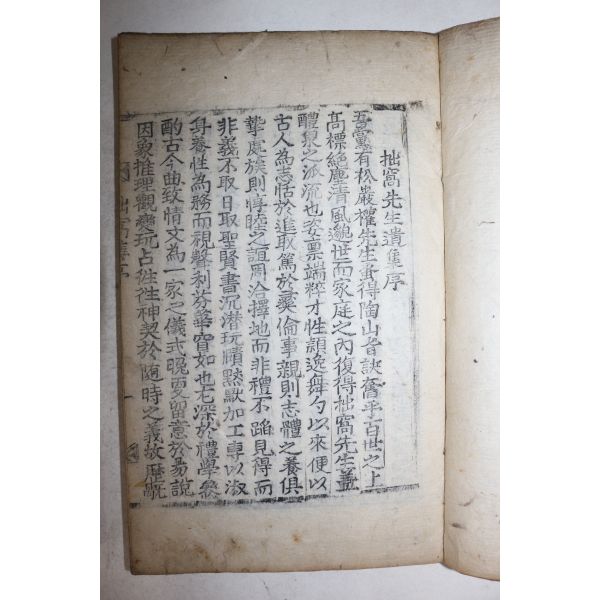 拙窩先生遺集序
吾黨有松巖權先生蚤得陶山旨訣奮乎百世之上
高標絶塵淸風邈世而家庭之內復得拙窩先生蓋
醴泉之派流也姿禀端粹才性頴逸舞勺以來便以
古人爲志恬於進取篤於彛倫事親則志體之養俱
摯處族則惇睦之誼周洽擇地而非禮不蹈見得而
非義不取日取聖賢書沉潛玩賾黙黙加工專以淑
身養性爲務而視聲利芬華窅如也尤深於禮學叅
酌古今曲致情文爲一家之儀式晩更留意於易說
因象推理觀變玩占徃徃神契於隨時之義故
拙窩集序